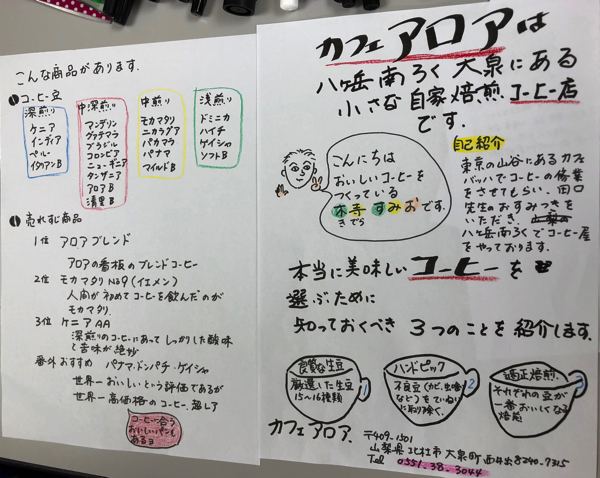 こんな商品があります。
❶ コーヒー豆
深煎り
ケニア
インディア
ペルー
イタリアンB
中深煎り
マンデリン
グァテマラ
ブラジル
コロンビア
ニューギニア
タンザニア
アロアB
清里B
中煎り
モカマタリ
ニカラグア
パカマラ
パナマ
マイルドB
浅煎り
ドミニカ
ハイチ
ゲイシャ
ソフトB
❶ 売れすじ商品
1位 アロアブレンド
アロアの看板のブレンドコーヒー
2位 モカマタリNo9(イエメン)
人間が初めてコーヒーを飲んだのが
モカマタリ.
3位 ケニアAA
深煎りのコーヒーにあってしっかりした酸味
と苦味が絶妙
番外おすすめ パナマ・ドンパチ・ゲイシャ
世界一おいしいという評価であるが
世界一高価格のコーヒー.超レア
コーヒーに合う
おいしいパンも
あるヨ
カフェ アロアは
八ヶ岳南ろく大泉にある
小さな自家焙煎コーヒー店
です.
こんにちは
おいしいコーヒーを
つくっている
木寺すみおです.
きでら
自己紹介
東京の山谷にあるカフェ
バッハでコーヒーの修業
をさせてもらい.田口
先生のおすみつきを
いただき.
八ヶ岳南ろくでコーヒー屋
をやっております.
本当に美味しいコーヒーを
選ぶために
知っておくべき 3つのことを紹介します.
良質な生豆
厳選した生豆
15〜16種類
1
ハンドピック
不良豆(カビ、虫喰い
など)をていねい
に取り除く.
2
適正焙煎.
それぞれの豆が
一番おいしくなる
焙煎
3
カフェアロア.
〒409-1501
山梨県北杜市大泉町西井出8240-7315
Tel 0551.38.3044